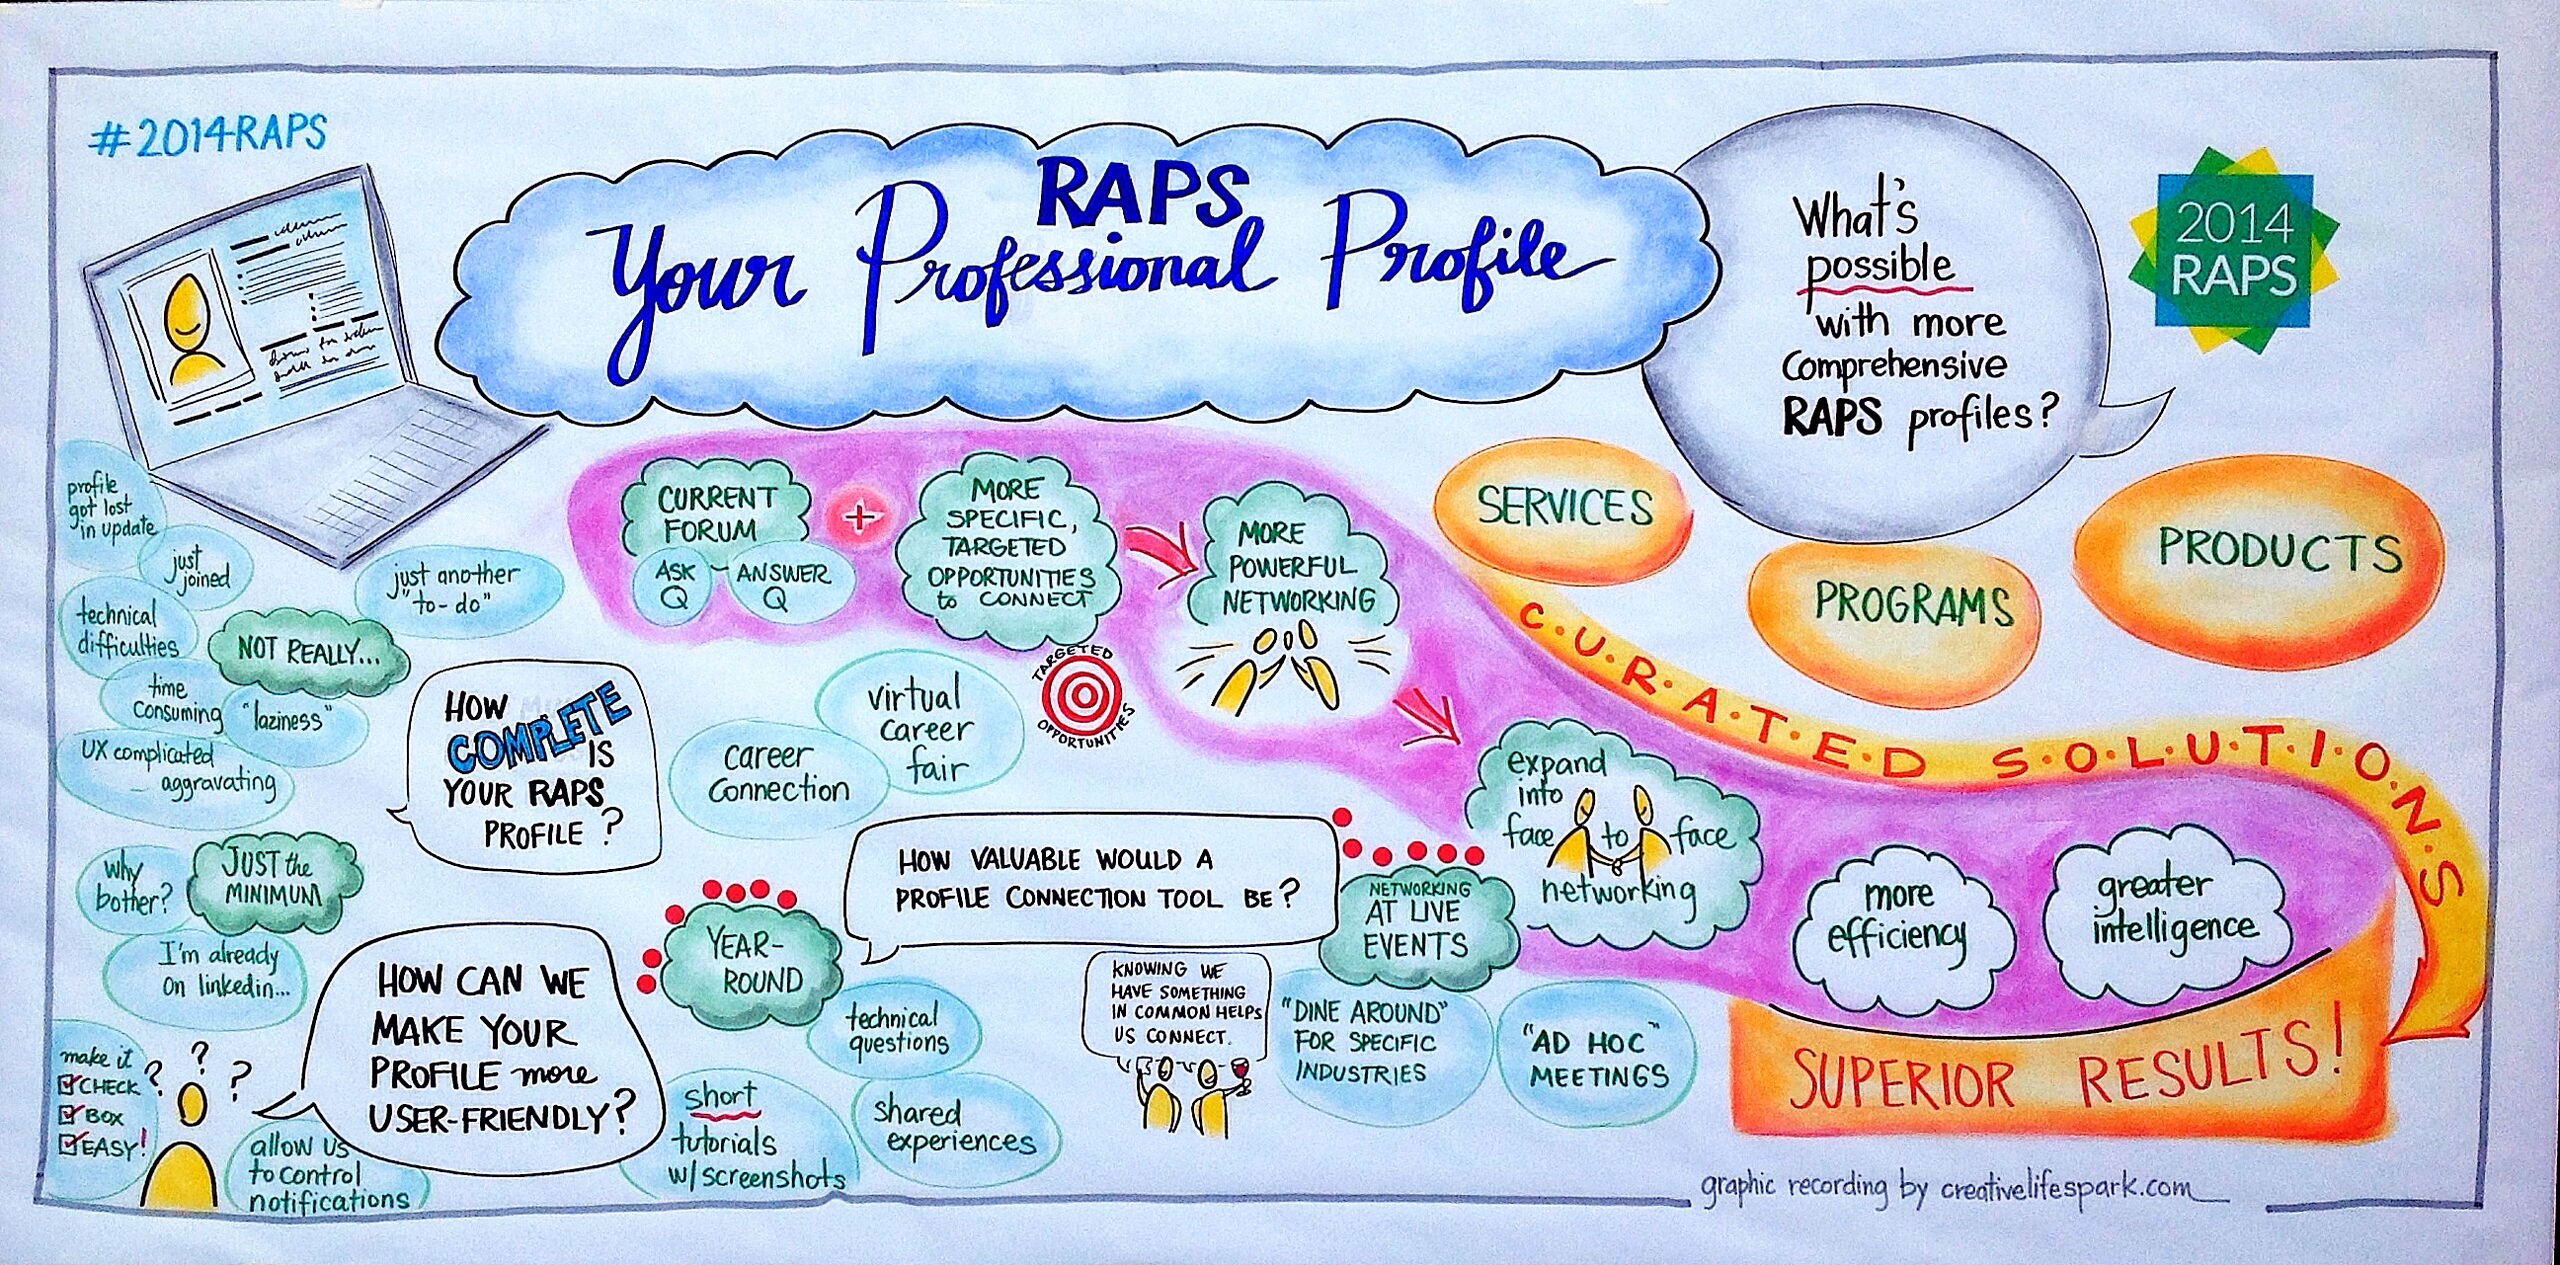 #2014RAPS
RAPS
Your Professional Profile
What's
possible
with more
Comprehensive
RAPS profiles?
2014
RAPS
profile
got lost
in update
just
joined
just another
"to-do"
technical
difficulties
NOT REALLY...
time
consuming
"laziness"
UX complicated
aggravating
HOW
COMPLETE
IS
YOUR RAPS
PROFILE?
why
bother?
JUST the
MINIMUM
I'm already
on linkedin...
HOW CAN WE
MAKE YOUR
PROFILE more
USER-FRIENDLY?
make it
CHECK
BOX
EASY!
? ? ?
allow us
to control
notifications
short
tutorials
w/screenshots
CURRENT
FORUM
ASK
Q
ANSWER
Q
+
MORE
SPECIFIC,
TARGETED
OPPORTUNITIES
to CONNECT
MORE
POWERFUL
NETWORKING
TARGETED
OPPORTUNITIES
virtual
career
fair
career
connection
HOW VALUABLE WOULD A
PROFILE CONNECTION TOOL BE?
YEAR-
ROUND
technical
questions
shared
experiences
KNOWING WE
HAVE SOMETHING
IN COMMON HELPS
US CONNECT.
NETWORKING
AT LIVE
EVENTS
"DINE AROUND"
FOR SPECIFIC
INDUSTRIES
"AD HOC"
MEETINGS
expand
into
face to face
networking
SERVICES
PROGRAMS
PRODUCTS
C·U·R·A·T·E·D S·O·L·U·T·I·O·N·S
more
efficiency
greater
intelligence
SUPERIOR RESULTS!
graphic recording by creativelifespark.com